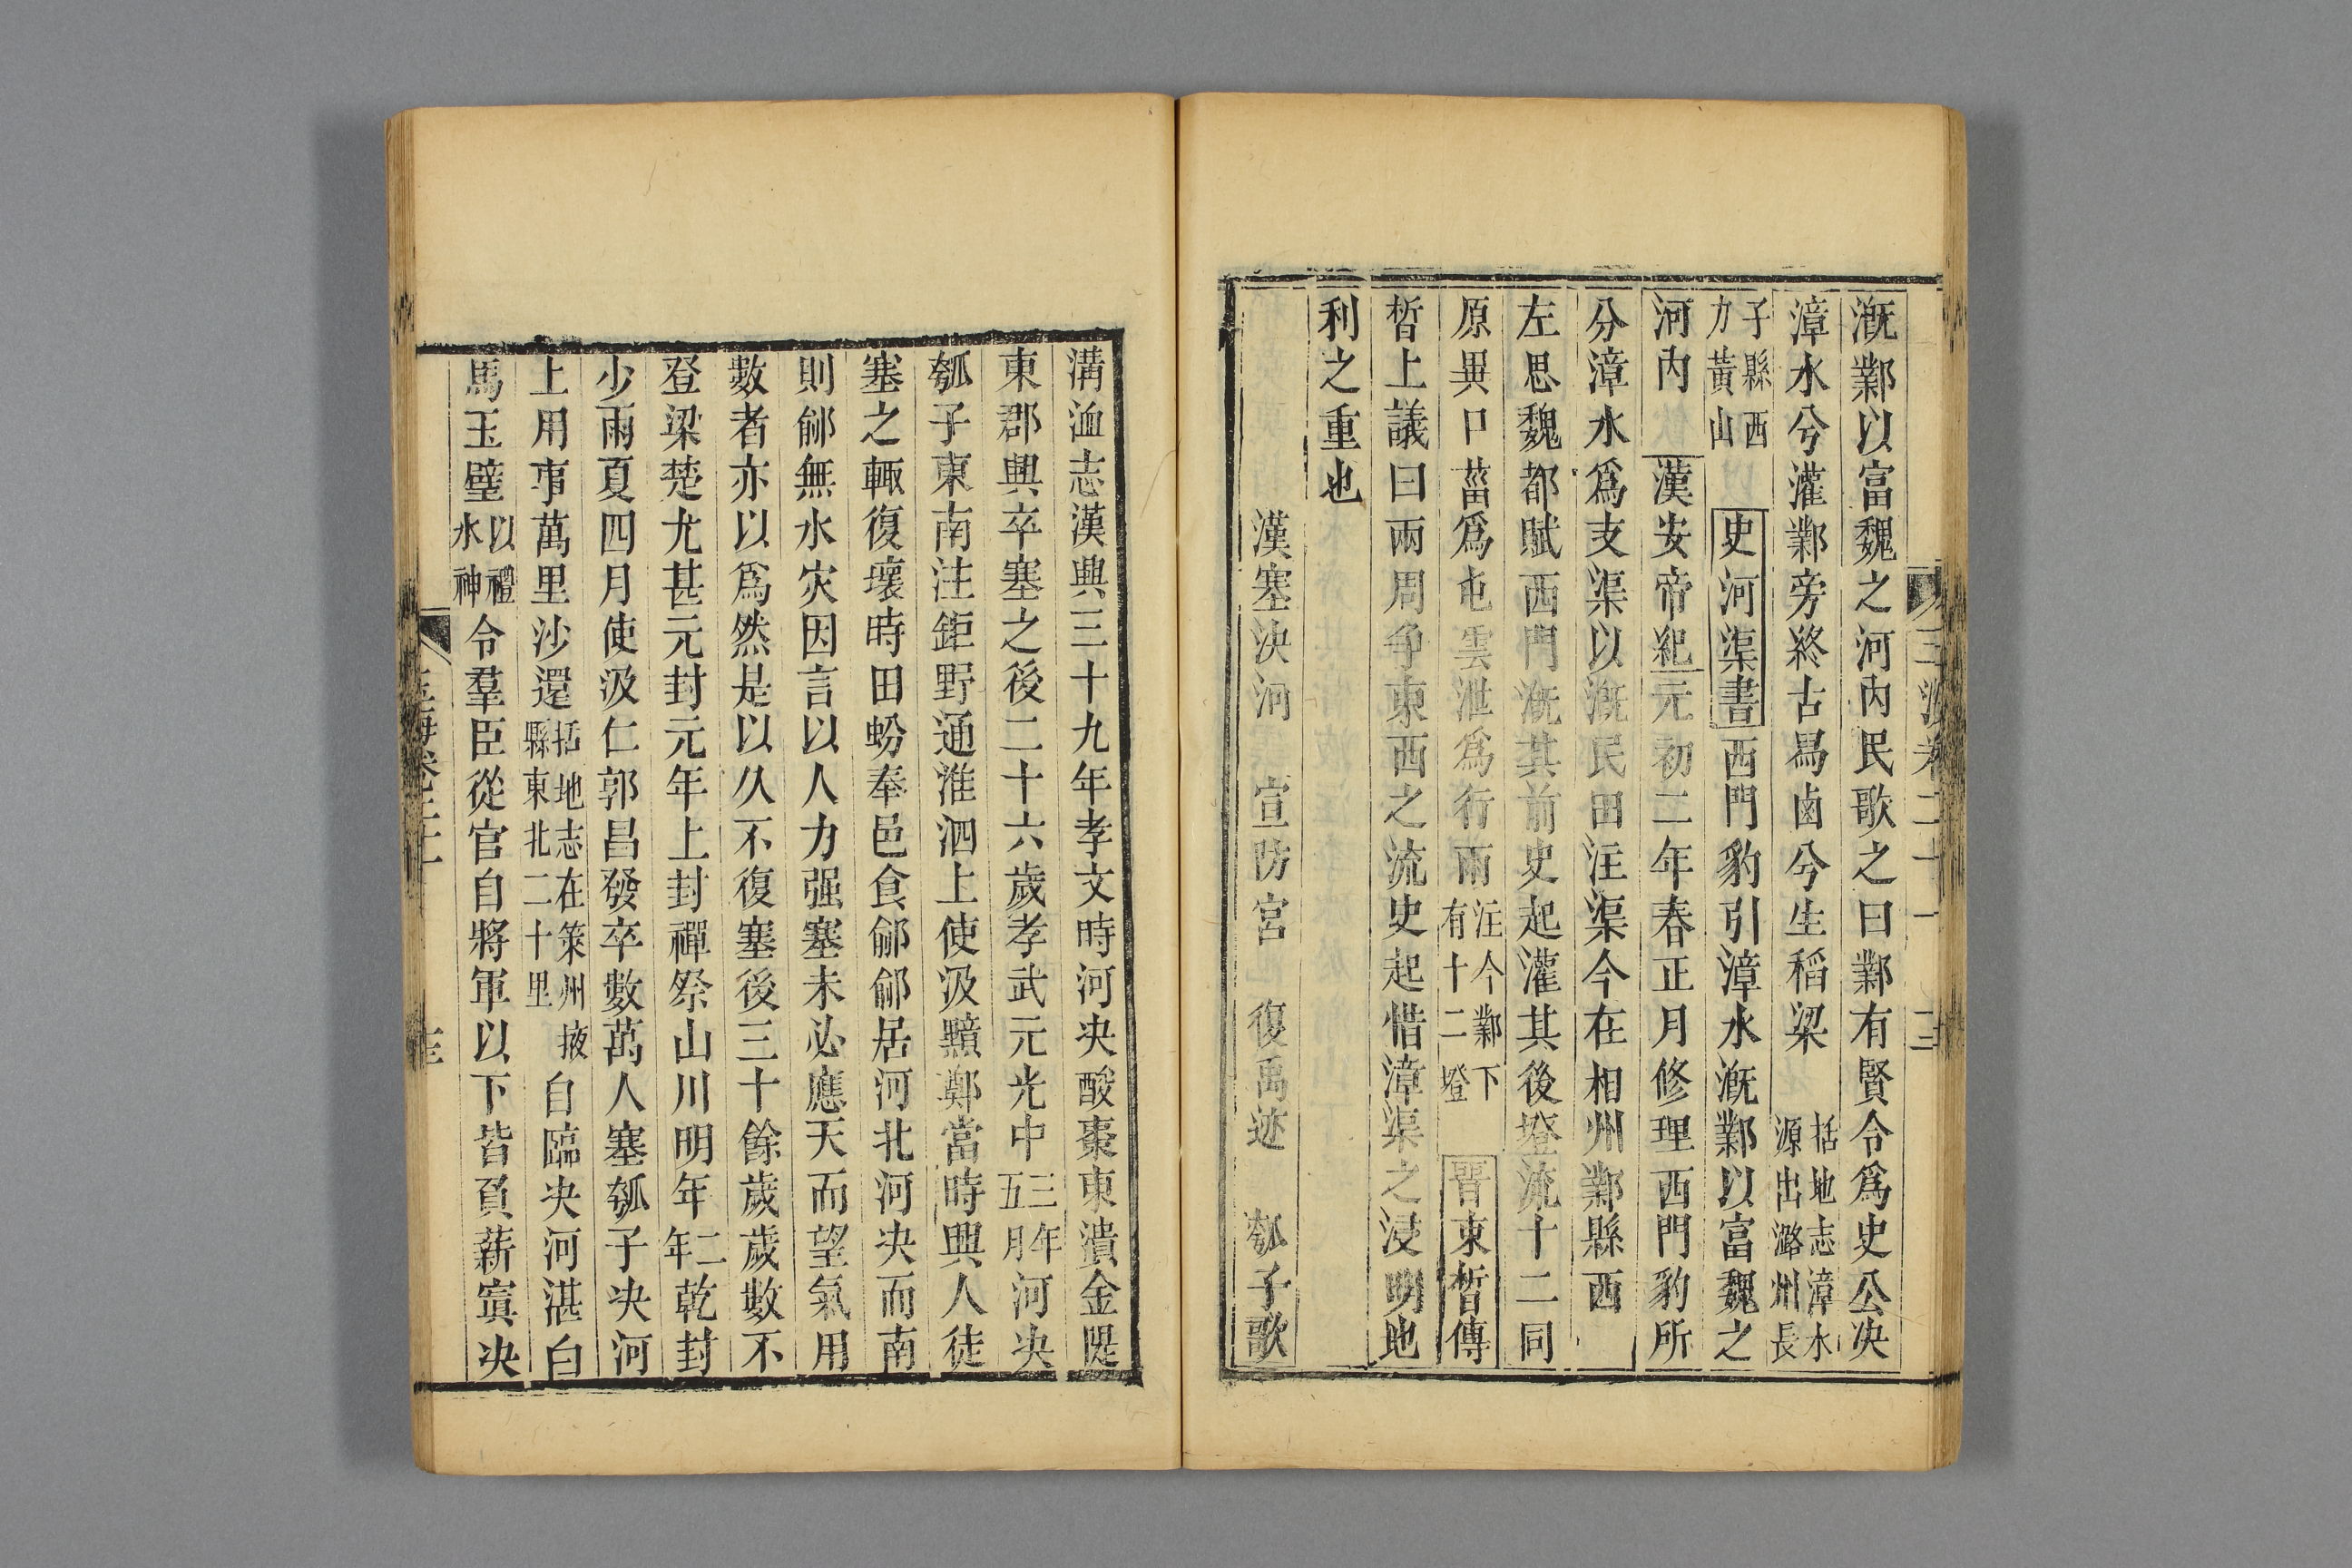 漑鄴以富魏之河內民歌之曰鄴有賢令爲史公决
漳水兮灌鄴旁終古舄鹵兮生稻梁括地志漳水源出潞州長
子縣西力黃山史河渠書西門豹引漳水漑鄴以富魏之
河內漢安帝紀元初二年春正月修理西門豹所
分漳水爲支渠以漑民田注渠今在相州鄴縣西
左思魏都賦西門漑其前史起灌其後墱流十二同
原異口菑爲屯雲泄爲行雨注今鄴下有十二墱晉束晳傳
晳上議曰兩周爭東西之流史起惜漳渠之浸明地
利之重也
漢塞決河 宣防宮 復禹迹 瓠子歌
溝洫志漢興三十九年孝文時河决酸棗東潰金隄
東郡興卒塞之後二十六歲孝武元光中三年五月河决
瓠子東南注鉅野通淮泗上使汲黯鄭當時興人徒
塞之輒復壞時田蚡奉邑食鄃鄃居河北河决而南
則鄃無水灾因言以人力强塞未必應天而望氣用
數者亦以爲然是以乆不復塞後三十餘歲歲數不
登梁楚尤甚元封元年上封禪祭山川明年二年乾封
少雨夏四月使汲仁郭昌發卒數萬人塞瓠子决河
上用事萬里沙還括地志在萊州掖縣東北二十里自臨决河湛白
馬玉璧以禮水神令羣臣從官自將軍以下皆負薪寘决